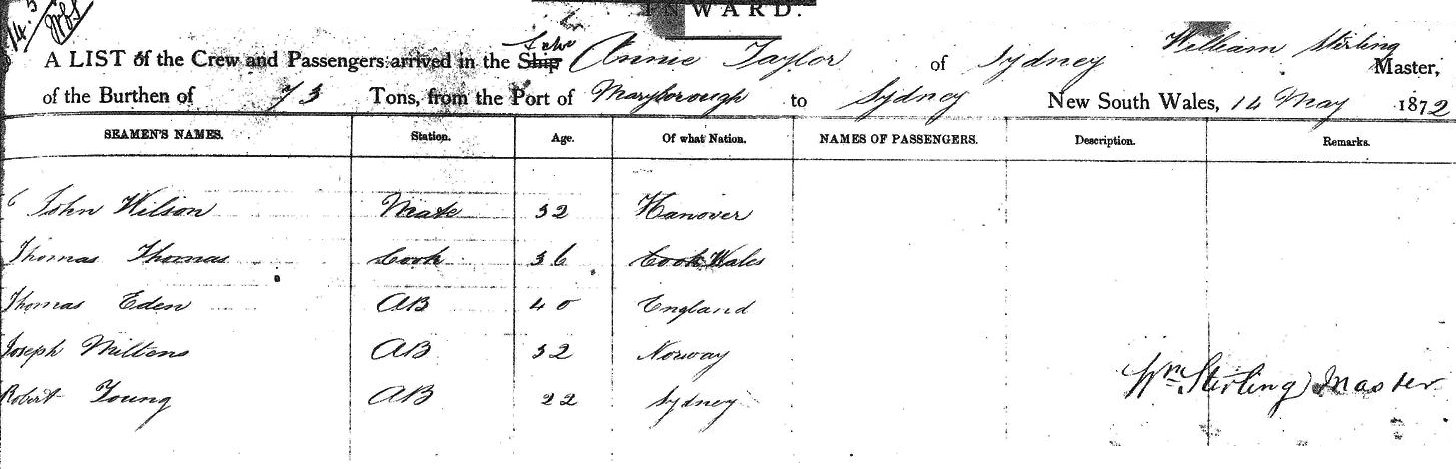 INWARD.
A LIST of the Crew and Passengers arrived in the Ship Annie Taylor of Sydney William Stirling Master,
of the Burthen of 73 Tons, from the Port of Maryborough to Sydney New South Wales, 14 May 1872
SEAMEN'S NAMES. Station. Age. Of what Nation. NAMES OF PASSENGERS. Description. Remarks.
John Wilson Mate 32 Hanover
Thomas Thomas Cook 36 Cook Wales
Thomas Eden AB 40 England
Joseph AB 32 Norway
Robert Young AB 22 Sydney
Wm Stirling Master